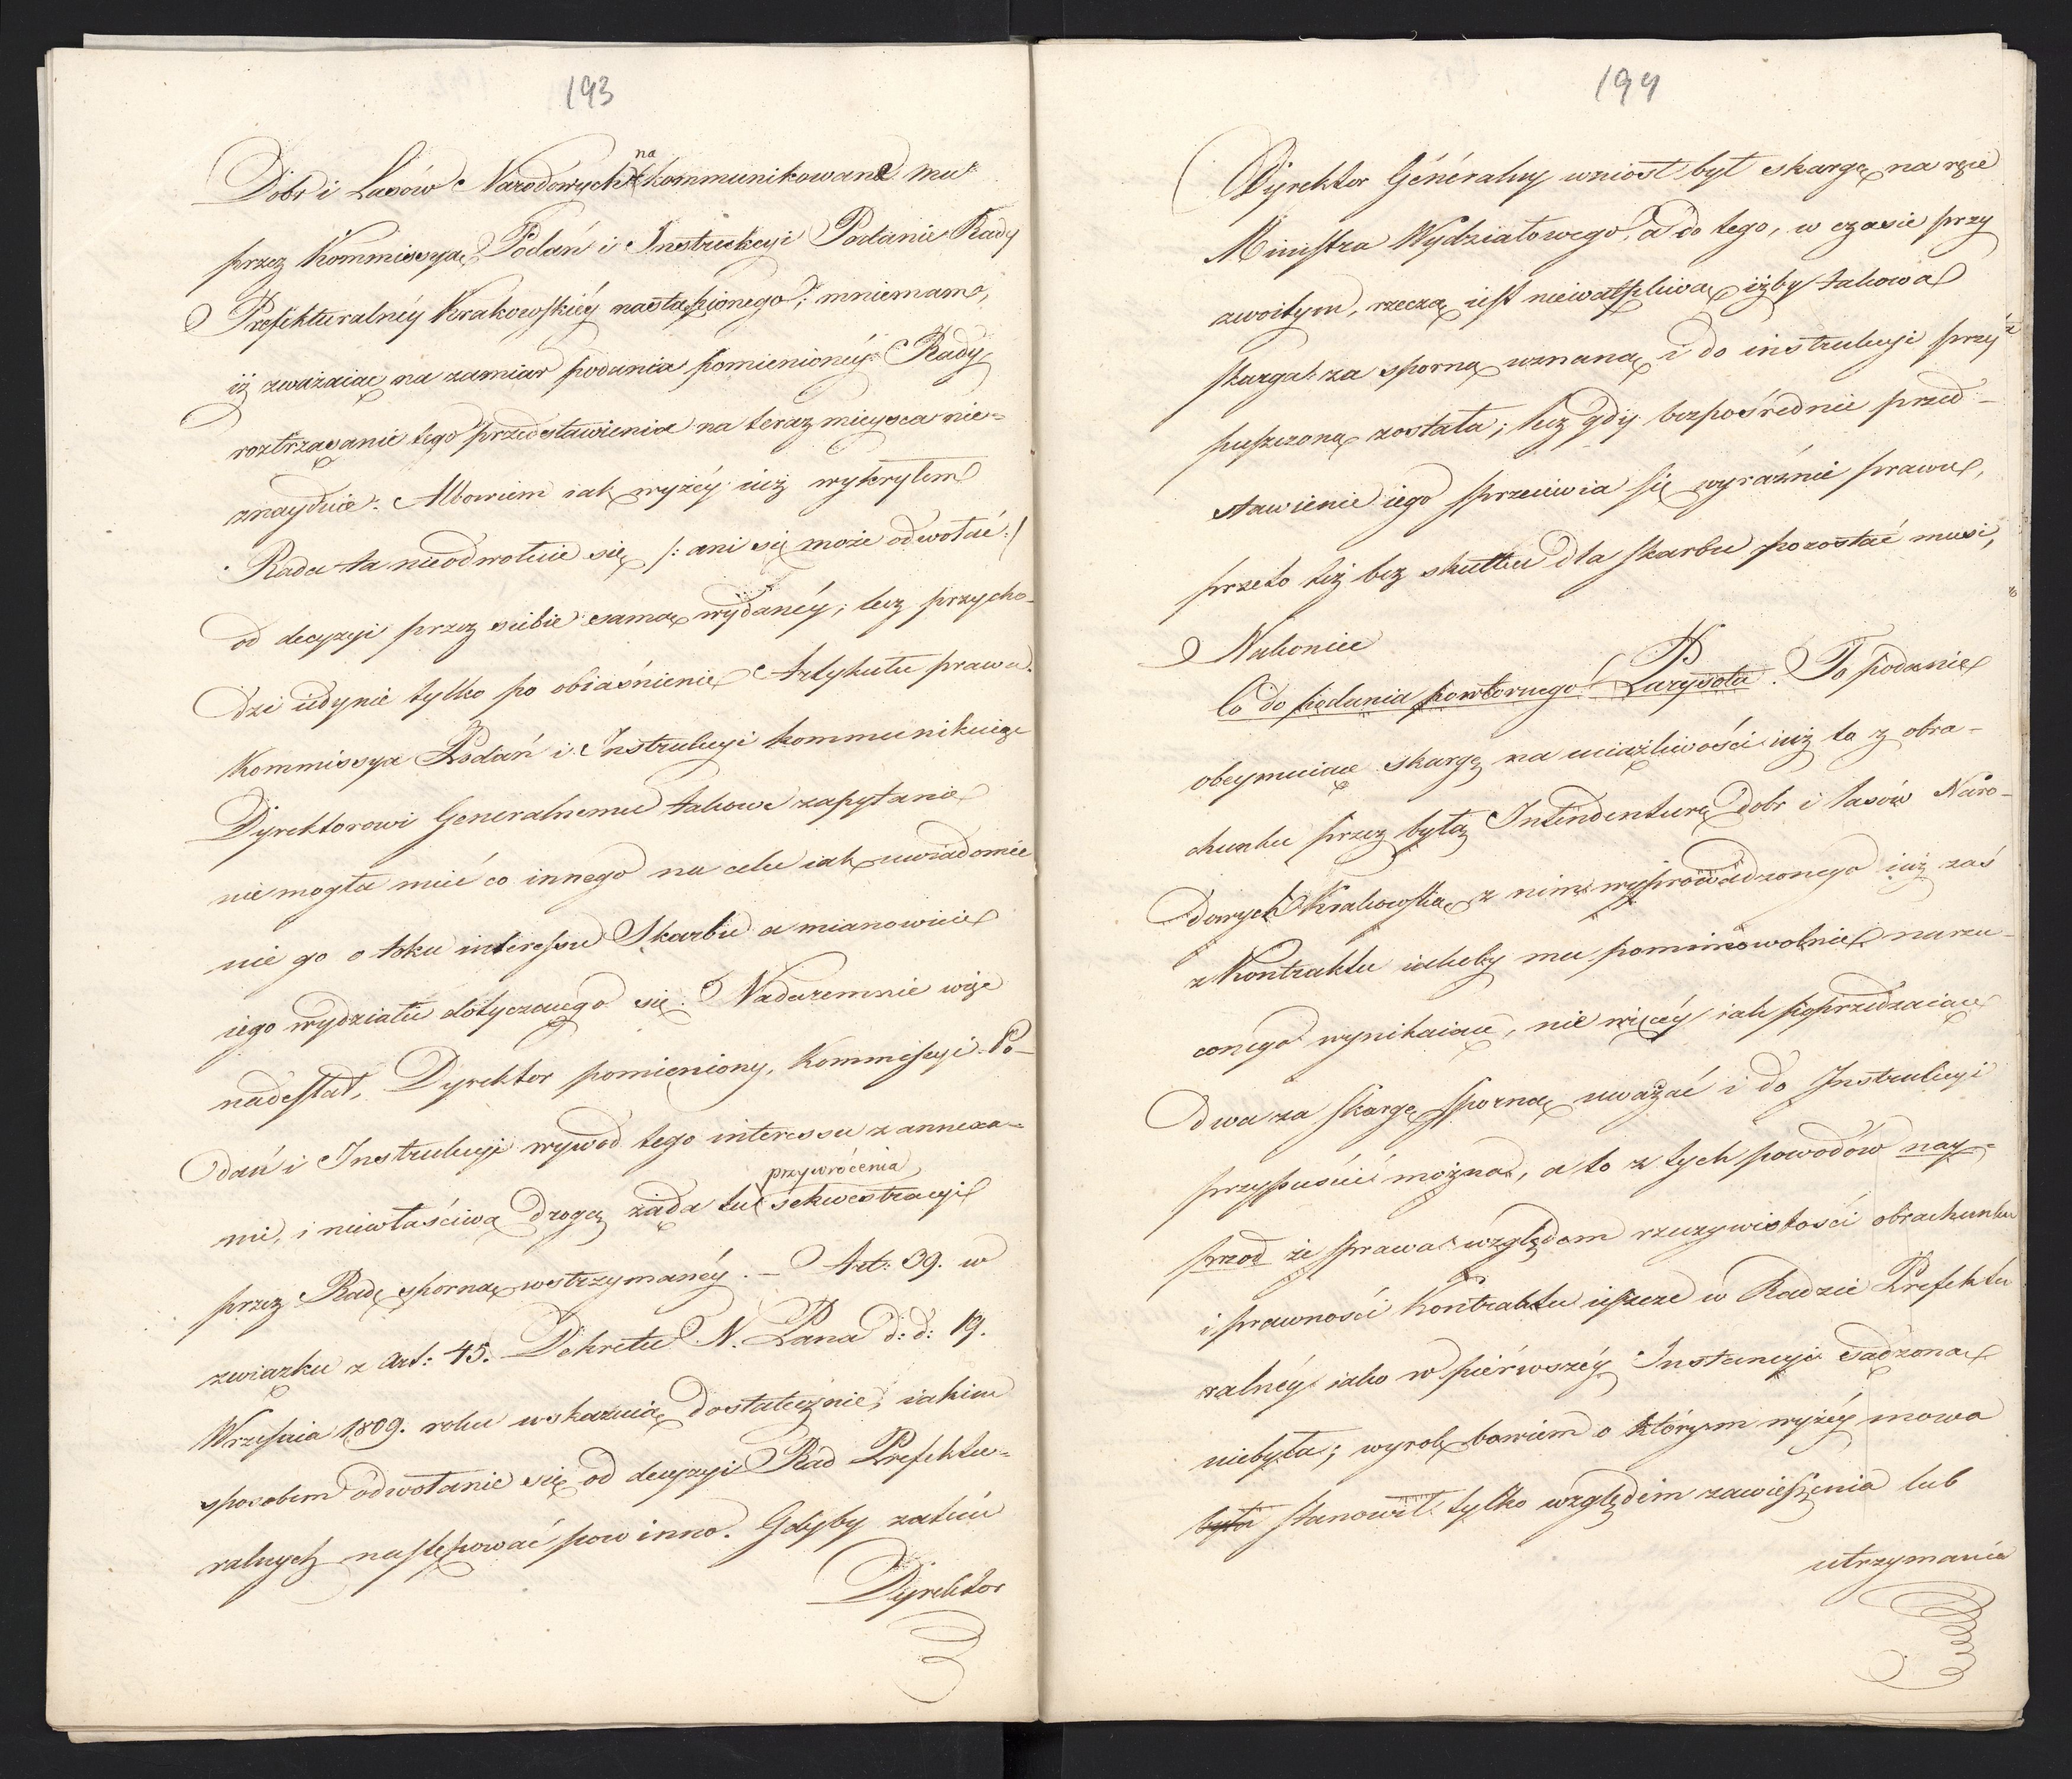 193
Dóbr i Lasów Narodowych na kommunikowane mu
przez Kommissyą Podań i Instrukcyi Podanie Rady
Prefekturalnéy Krakowskiéy nastąpionego; mniemam,
iż zważaiąc na zamiar podania pomienionéy Rady
roztrząsanie tego przedstawienia na teraz mieysca nie=
znayduie: Albowiem iak wyżéy iuż wykryłem
Rada ta nieodwołuie się /: ani się może odwołać :/
od decyzyi przez siebie samą wydanéy; lecz przycho-
dzi iedynie tylko po obiaśnienie Artykułu prawa.
Kommissya Podań i Instrukcyi kommunikuiąc
Dyrektorowi Generalnemu takowe zapytanie
nie mogła mieć co innego na celu iak uwiadomie
nie go o toku interessu Skarbu a mianowicie
iego wydziału dotyczącego się. Nadaremnie więc
nadesłał, Dyrektor pomieniony, Kommissyi Po-
dań i Instrukcyi wywod tego interessu z annexa=
mi, i niewłaściwą drogą żąda tu przywrócenia sekwestracyi
przez Radę sporną wstrzymanéy. – Art: 39. w
związku z Art: 45. Dekretu N. Pana d: d: 19.
Września 1809. roku wskazuią dostatecznie, iakim
sposobem odwołanie się od decyzyi Rad Prefektu=
ralnych następować powinno. Gdyby zatém
Dyrektor
194
Dyrektor Generalny wniosł był skargę na ręce
Ministra Wydziałowego, a do tego, w czasie przy
zwoitym, rzeczą iest niewątpliwą iżby takowa
skarga za sporną uznaną i do instrukcyi przy
puszczoną została; lecz gdy bezpośrednie przed-
stawienie iego sprzeciwia się wyraźnie prawu,
przeto też bez skutku dla skarbu pozostać musi,
Nakoniec
Co do podania powtornego P. Laryssota. To podanie
obeymuiące skargę na uciążliwości iuż to z obra-
chunku przez byłą Intendenturę dobr i lasów Naro-
dowych Krakowską z nim wyprowadzonego iuż zaś
z Kontraktu iakoby mu pomimowolnie narzu-
conego wynikaiące, nie więcéy iak poprzedzaiące
dwa za skargę sporną uważać i do Instrukcyi
przypuścić można, a to z tych powodów nay=
przod że sprawa względem rzeczywistości obrachunku
i prawności Kontraktu ieszcze w Radzie Prefektu
ralnéy iako w piérwszéy Instancyi sądzoną
niebyła; wyrok bowiem o którym wyżéy mowa
była stanowił tylko względem zawieszenia lub
utrzymania